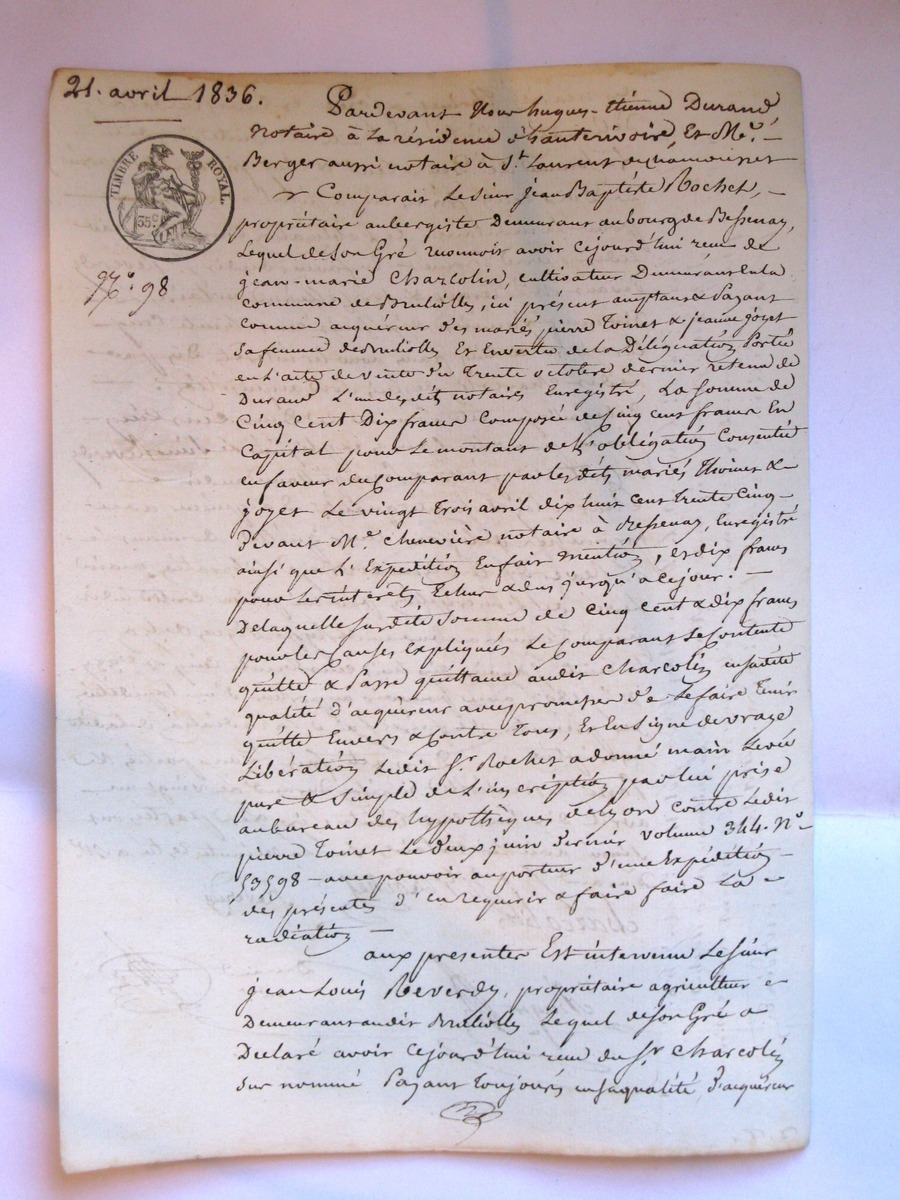 21. avril 1836.
TIMBRE ROYAL
35 c
N.o 98
Pardevant Nous hugues-étienne Durand
notaire à la résidence d'hauterivoire, Et Me.
Berger aussi notaire à St. Laurent de chamousset
Comparait Le sieur Jean Baptiste Rochet,
propriétaire aubergiste Demeurant au bourg de Bessenay,
Lequel de son Gré reconnoit avoir cejourd'hui reçu de
jean-marie Charcolin, cultivateur Demeurant en la
commune de Brulliolles, ici présent acceptant & Payant
comme acquéreur des mariés pierre Toinet & jeanne joyet
sa femme de Brulliolles Et En vertu de la Délégation Portée
en L'acte de vente du Trente octobre dernier retenu de
Durand L'un des dits notaires Enregistré, La Somme de
Cinq Cent Dix francs Composée de Cinq cent francs En
Capital pour Le montant de L'obligation Consentie
en faveur du Comparant par les dits mariés Thoinet &
joyet Le vingt Trois avril dix huit cent trente Cinq
devant Me. Chenevière notaire à Bessenay, Enregistré
ainsi que L'Expédition En fait mention, et dix francs
pour Les intérêts Echus & dus jusqu'à ce jour.
De laquelle susdite Somme de Cinq Cent & dix francs
pour les Causes Expliqués Le Comparant Se Contente
quitte & Passe quittance audit Charcolin en sa dite
qualité d'acquéreur avec promesse de Le faire Tenir
quitte Envers & Contre Tous, Et En Signe de vraye
Libération Ledit Sr. Rochet a donné main Levée
pure & Simple de L'inscription par lui prise
au bureau des hypothèques de Lyon contre Ledit
pierre Toinet Le deux juin dernier volume 344. No.
53598 avec pouvoir au porteur d'une Expédition
des présentes d'en requérir & faire faire La
radiation
aux presentes Est intervenu Le sieur
Jean Louis Reverdy, propriétaire agriculteur
Demeurant audit Brulliolles Lequel de Son Gré a
Declaré avoir cejourd'hui reçu du Sr. Charcolin
sur nommé Payant Toujours en sa qualité, d'acquéreur